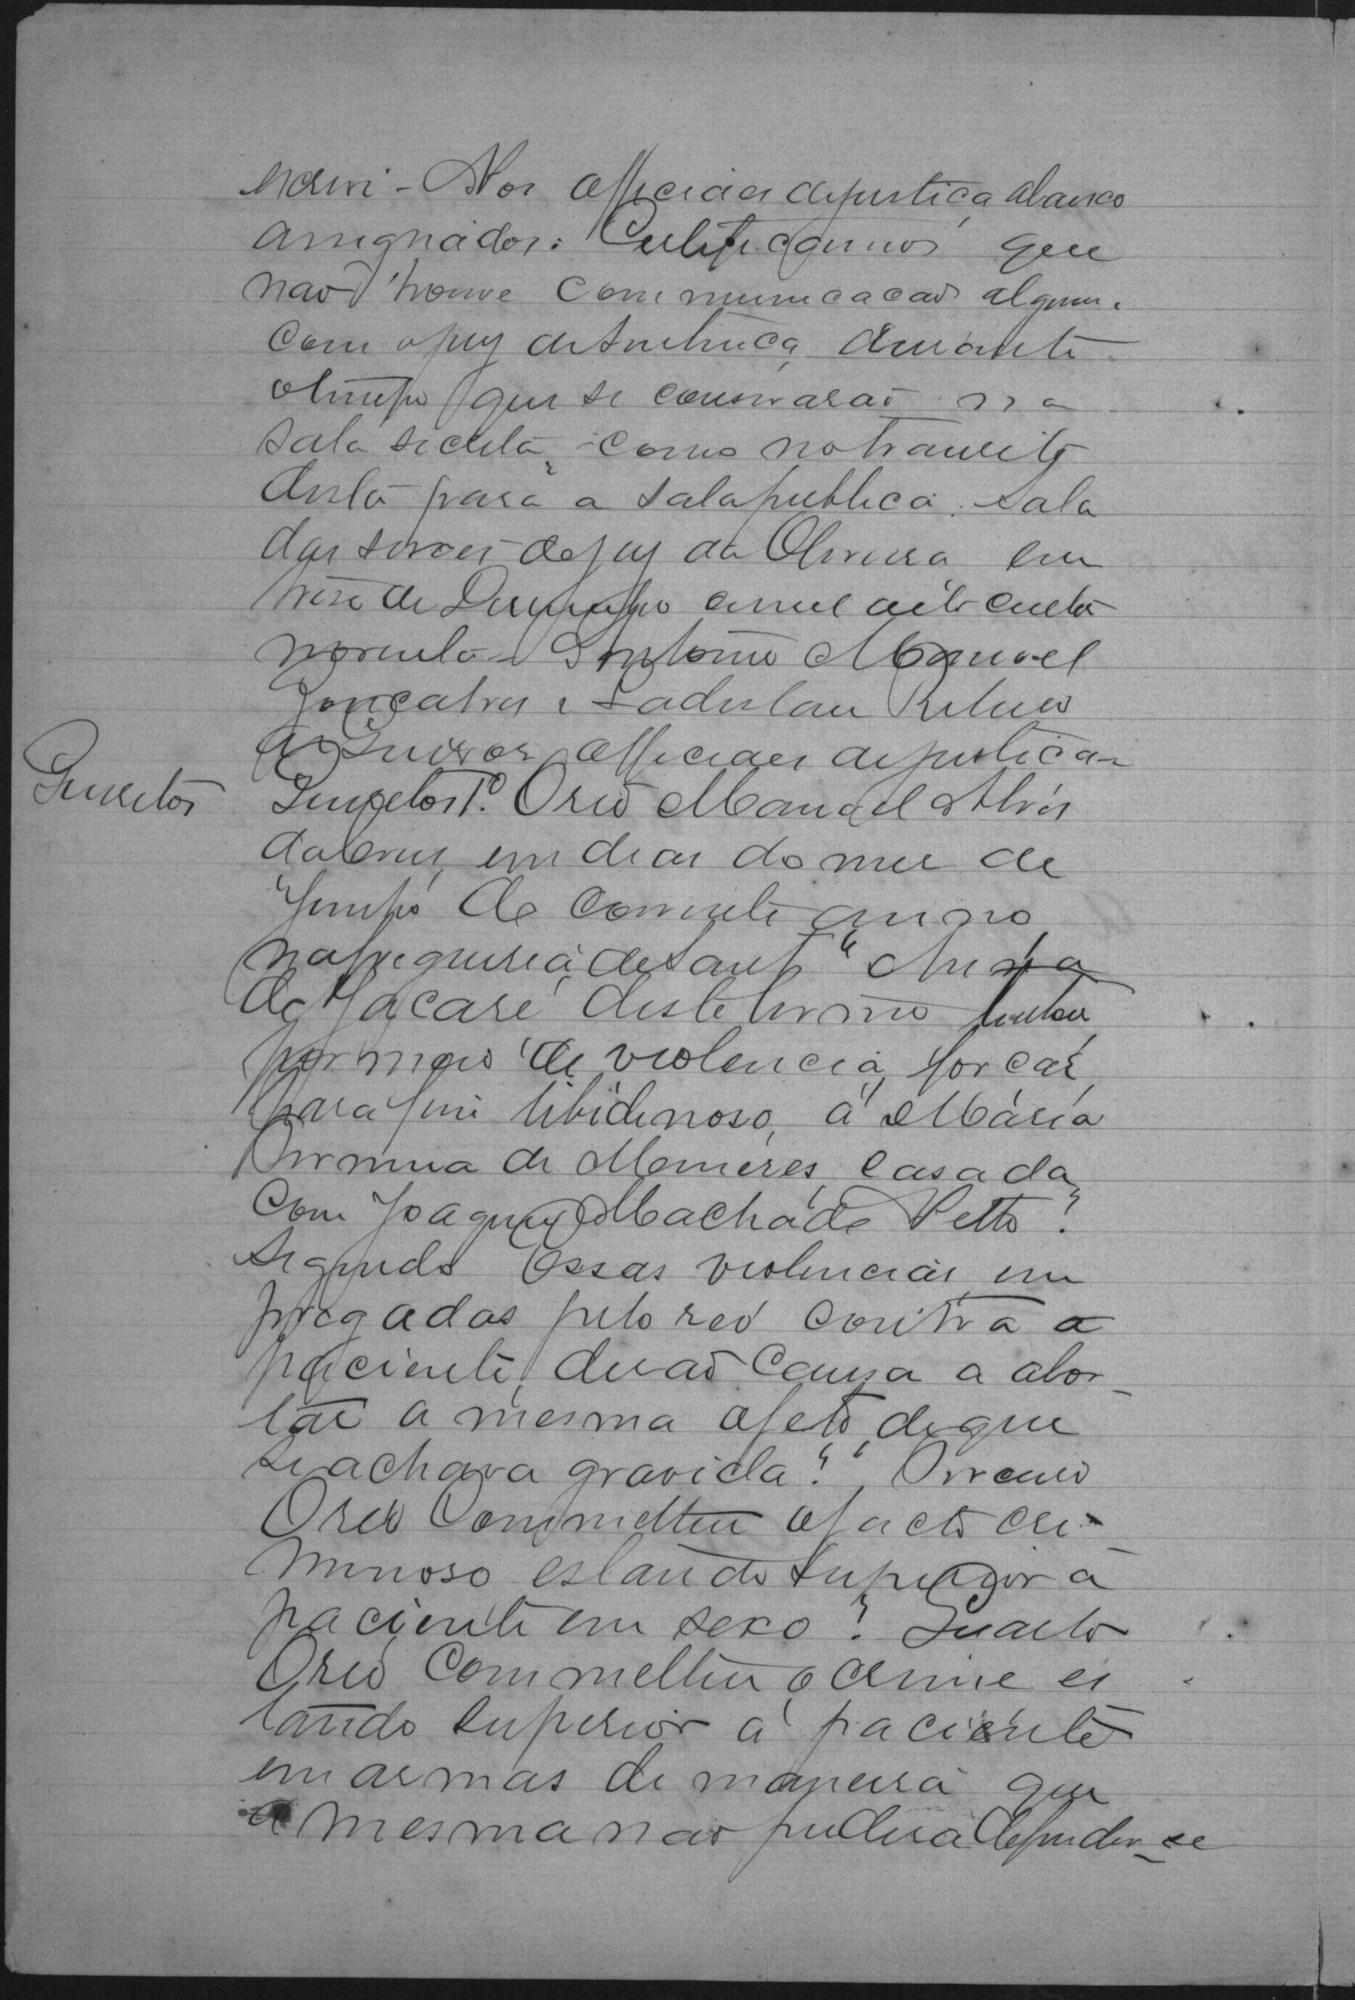 escrevi – Nos officiaes de justiça abaixo
assignados: Certificamos que
não houve communicação alguma
com o juy de sentença, durante
o tempo que se conservarão na
sala secreta, como no transito
desta para a sala publica. Sala
das do jury da Oliveira em
de Dezembro de mil oito centos
noventa – Antonio Manuel
Gonçalves e Ladislau Ribeiro
de officiaes de justiça –
Quesitos
Quesitos 1.º O reo Manoel Alves
da Cruz, em dias do mes de
Junho do corrente anno,
na freguesia de Sant'Anna
do Jacaré deste termo tentou
por meio de violencia, forçar,
para fim libidinoso, á Maria
de Meneses, casada
com Joaquim Machado Netto?
Segundo Essas violencias em
pregadas pelo reo contra a
paciente, derão causa a abor-
tar a mesma o feto, de que
se achava gravida? Terceiro
O reo commetteu o facto cri-
minoso estando superior á
paciente em sexo? Quarto
O reo commetteu o crime es
tando superior á paciente
em armas de maneira que
a mesma não pudera defender-se